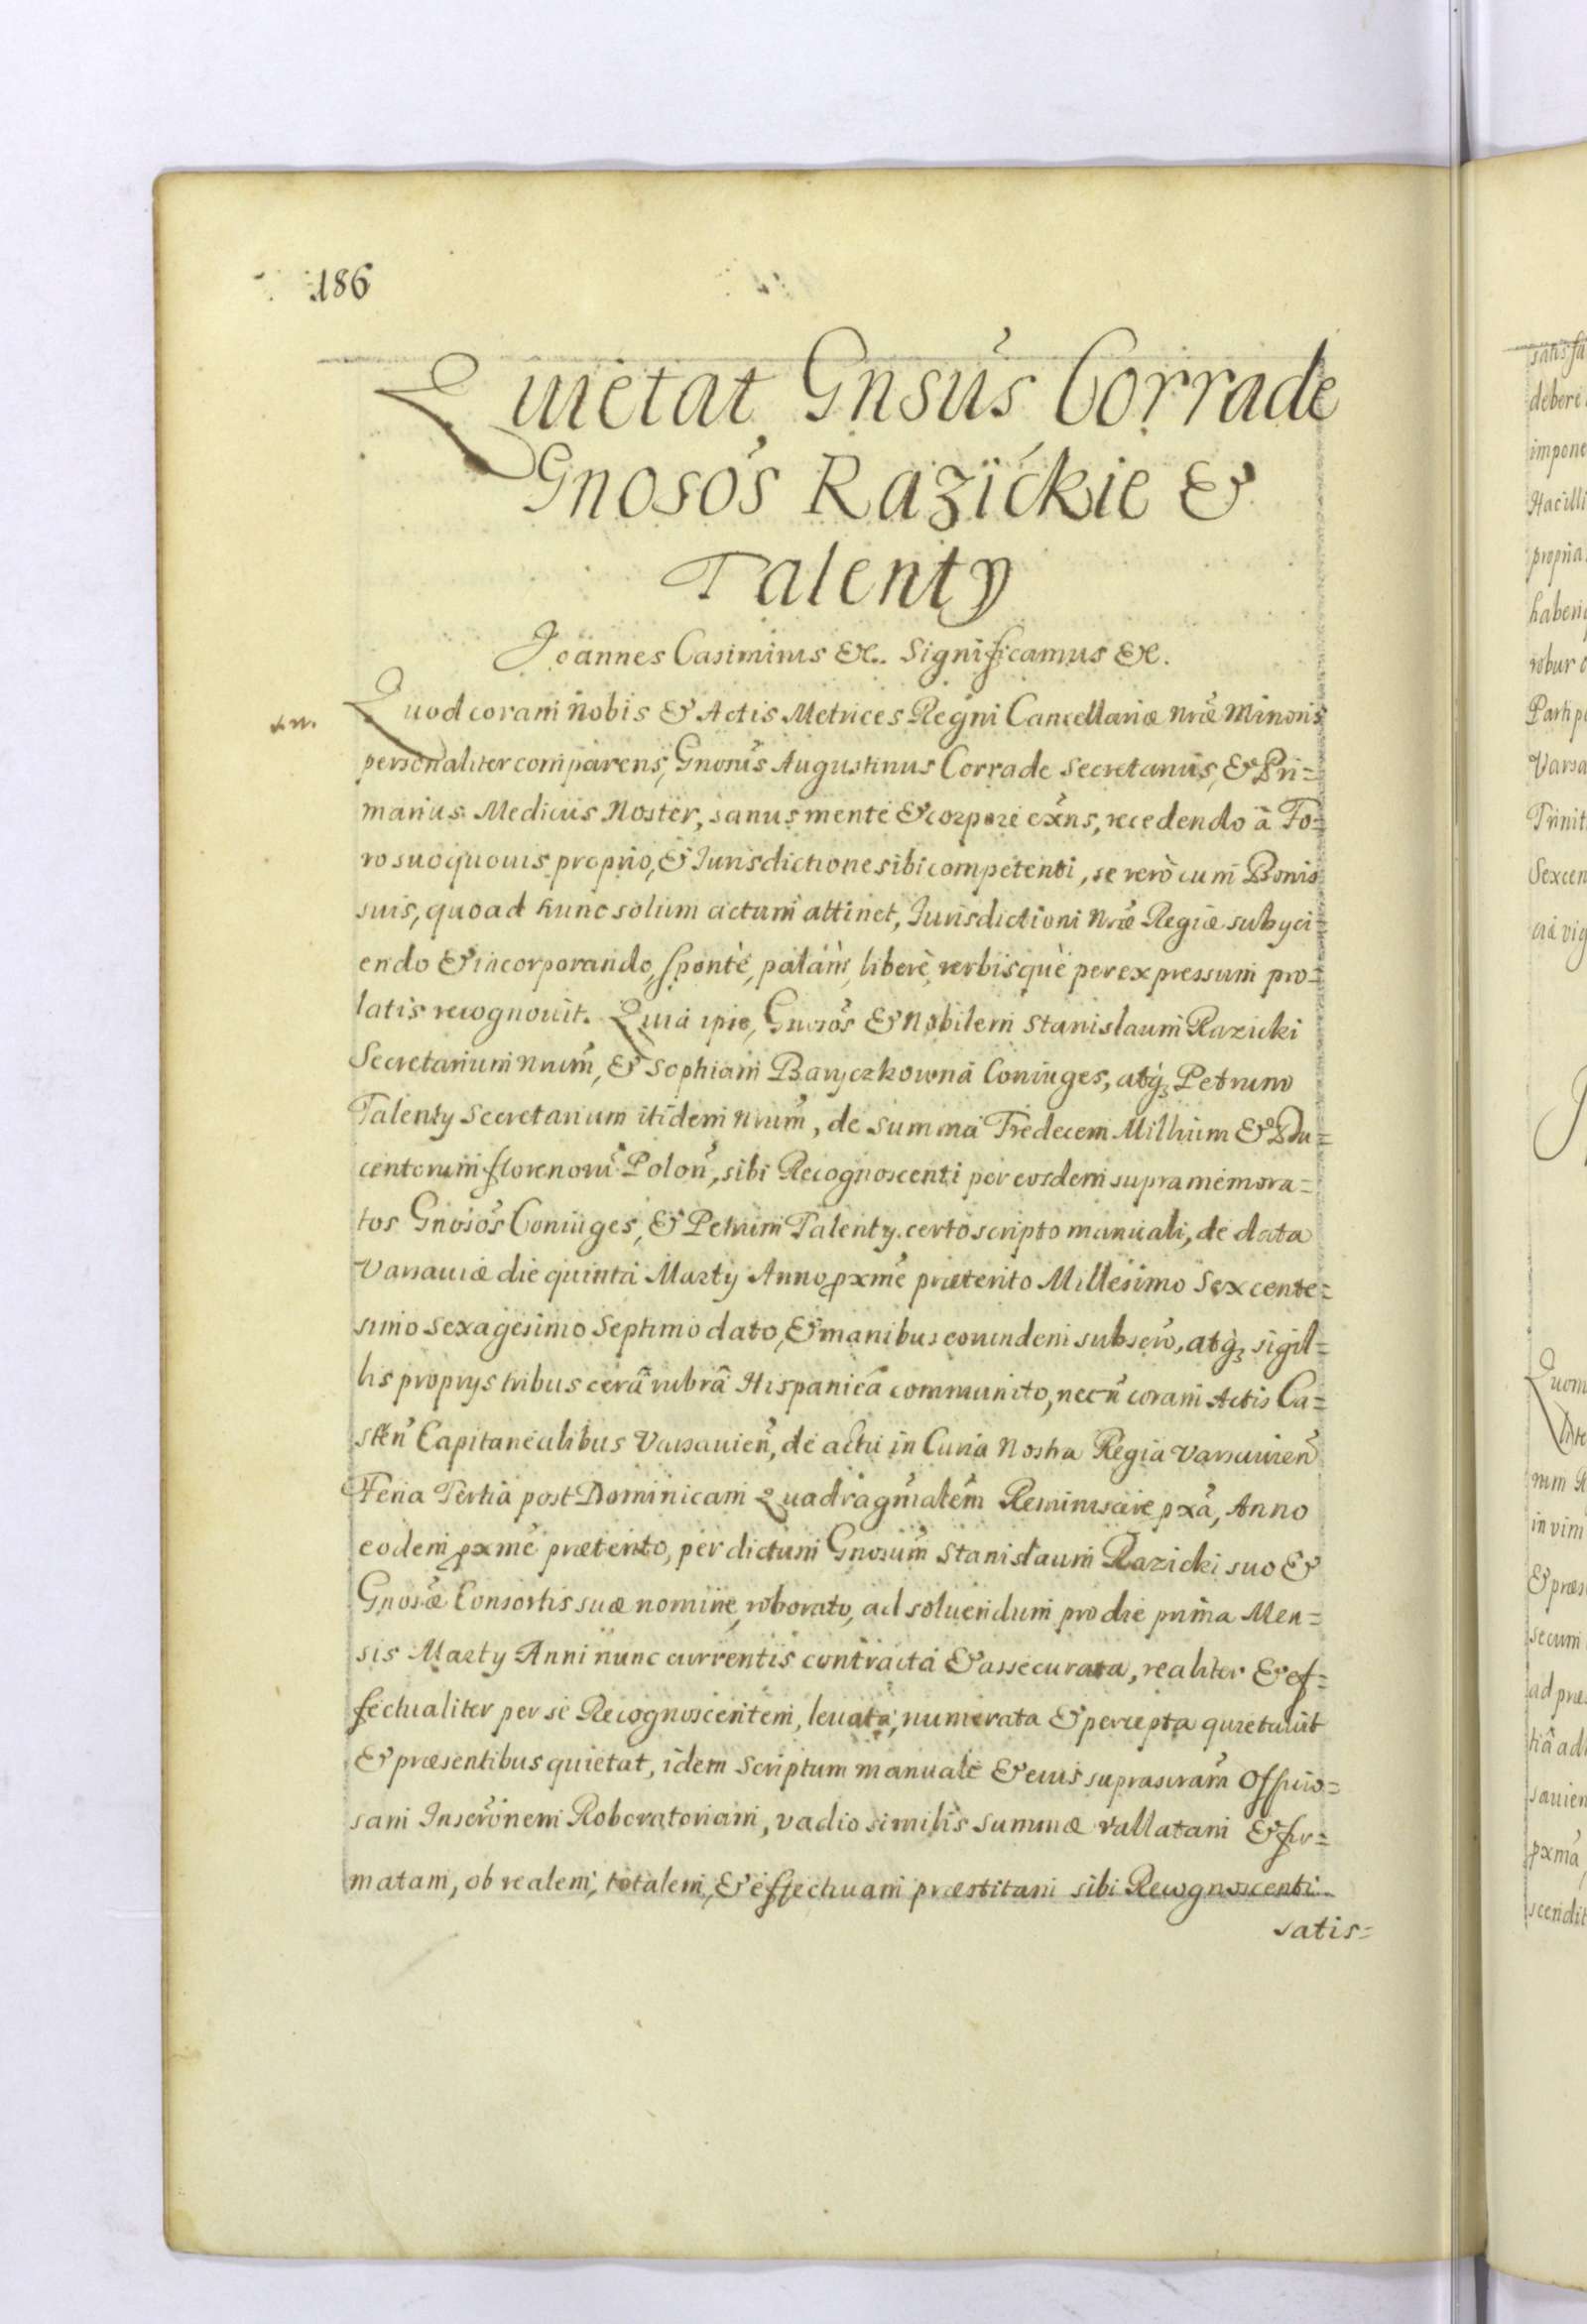 186
Quietat Gnsus Corrade
Gnosos Razickie &
Talenty
Joannes Casimirus &c. Significamus &c.
Quod coram nobis & Actis Metrices Regni Cancellariæ nræ Minoris
personaliter comparens, Gnosus Augustinus Corrade Secretarius, & Pri=
marius Medicus Noster, sanus mente & corpore exñs, recedendo à Fo=
ro suo quouis proprio, & Jurisdictione sibi competenti, se verò cum Bonis
suis, quoad hunc solum actum attinet, Jurisdictioni nræ Regiæ subyci=
endo & incorporando, spontè, palàm, liberè, verbisquè per expressum pro=
latis recognouit. Quia ipse, Gnosos & Nobilem Stanislaum Razicki
Secretarium nrum, & Sophiam Baryczkowna Coniuges, atq3 Petrum
Talenty Secretarium itidem nrum, de summa Tredecem Millium & Du=
centorum florenorũ Polonˀ, sibi Recognoscenti per eosdem supra memora=
tos Gnosos Coniuges, & Petrum Talenty certo scripto manuali, de data
Varsauiæ die quinta Marty Anno pxme præterito Millesimo Sexcente=
simo Sexagesimo Septimo dato, & manibus eorundem subscro, atq3 sigil=
lis proprys tribus cerâ rubrâ Hispanicâ communito, necñ coram Actis Ca=
streñ Capitanealibus Varsauieñ, de actu in Curia Nostra Regia Varsauieñ
Feria Tertia post Dominicam Quadragmalem Reminiscere pxã, Anno
eodem pxme præterito, per dictum Gnosum Stanislaum Razicki suo &
Gnosæ Consortis suæ nomine, roborato, ad soluendum pro die prima Men=
sis Marty Anni nunc currentis contracta & assecurata, realiter & ef=
fectualiter per se Recognoscentem, leuata, numerata & percepta quietauit
& præsentibus quietat, idem Scriptum manuale & eius suprascram Officio=
sam Inscronem Roboratoriam, vadio similis summæ vallatam & fir=
matam, ob realem, totalem, & effectuam præstitam sibi Recognoscenti
satis=